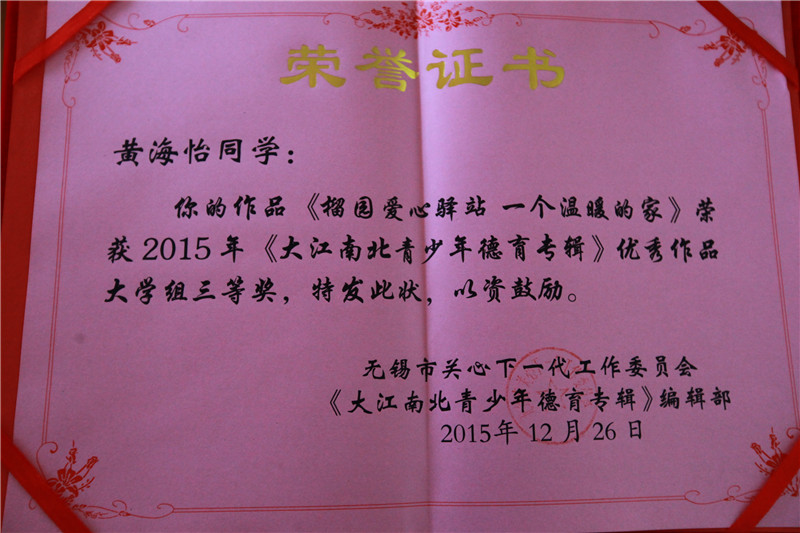 荣誉证书
黄海怡同学：
你的作品《榴园爱心驿站 一个温暖的家》荣
获2015年《大江南北青少年德育专辑》优秀作品
大学组三等奖，特发此状，以资鼓励。
无锡市关心下一代工作委员会
《大江南北青少年德育专辑》编辑部
2015年12月26日